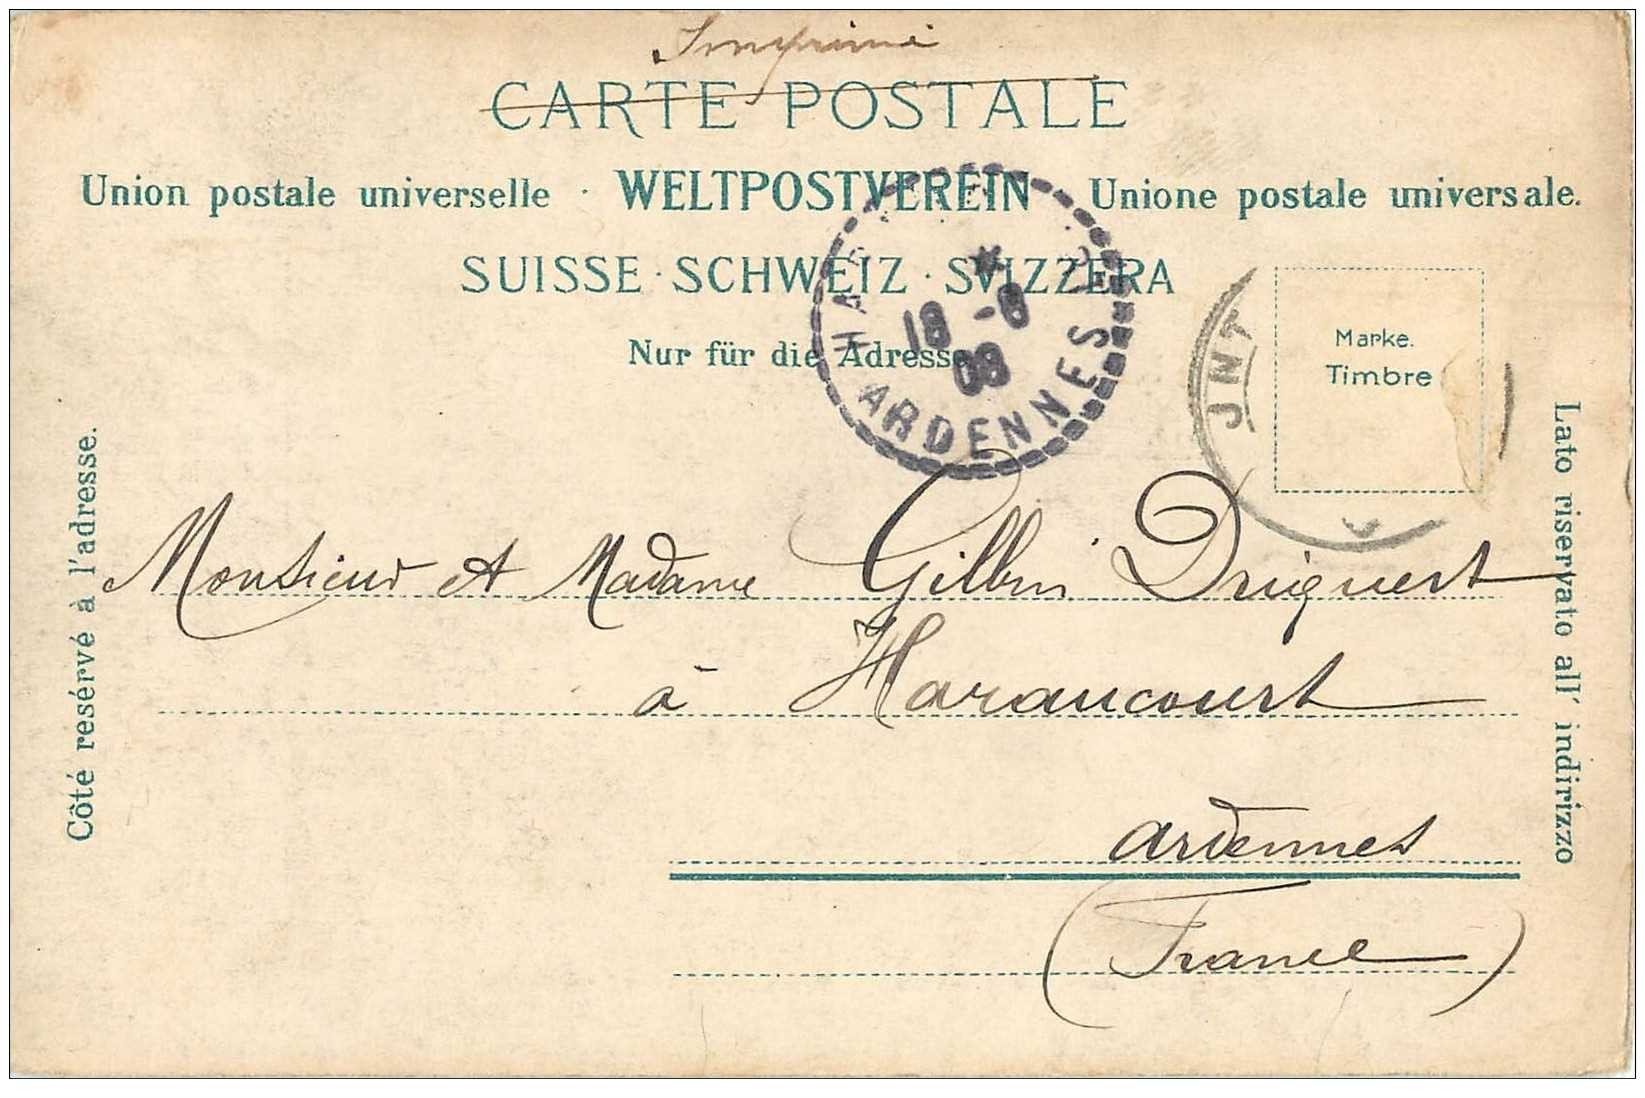 Imprimé
CARTE POSTALE
Union postale universelle · WELTPOSTVEREIN Unione postale universale.
SUISSE · SCHWEIZ · SVIZZERA
Nur für die Adresse
18 -8
08
ARDENNES
Marke.
Timbre
Côté resérvé à l'adresse.
Lato riservato all' indirizzo
Monsieur et Madame
à Haraucourt
Ardennes
(France)